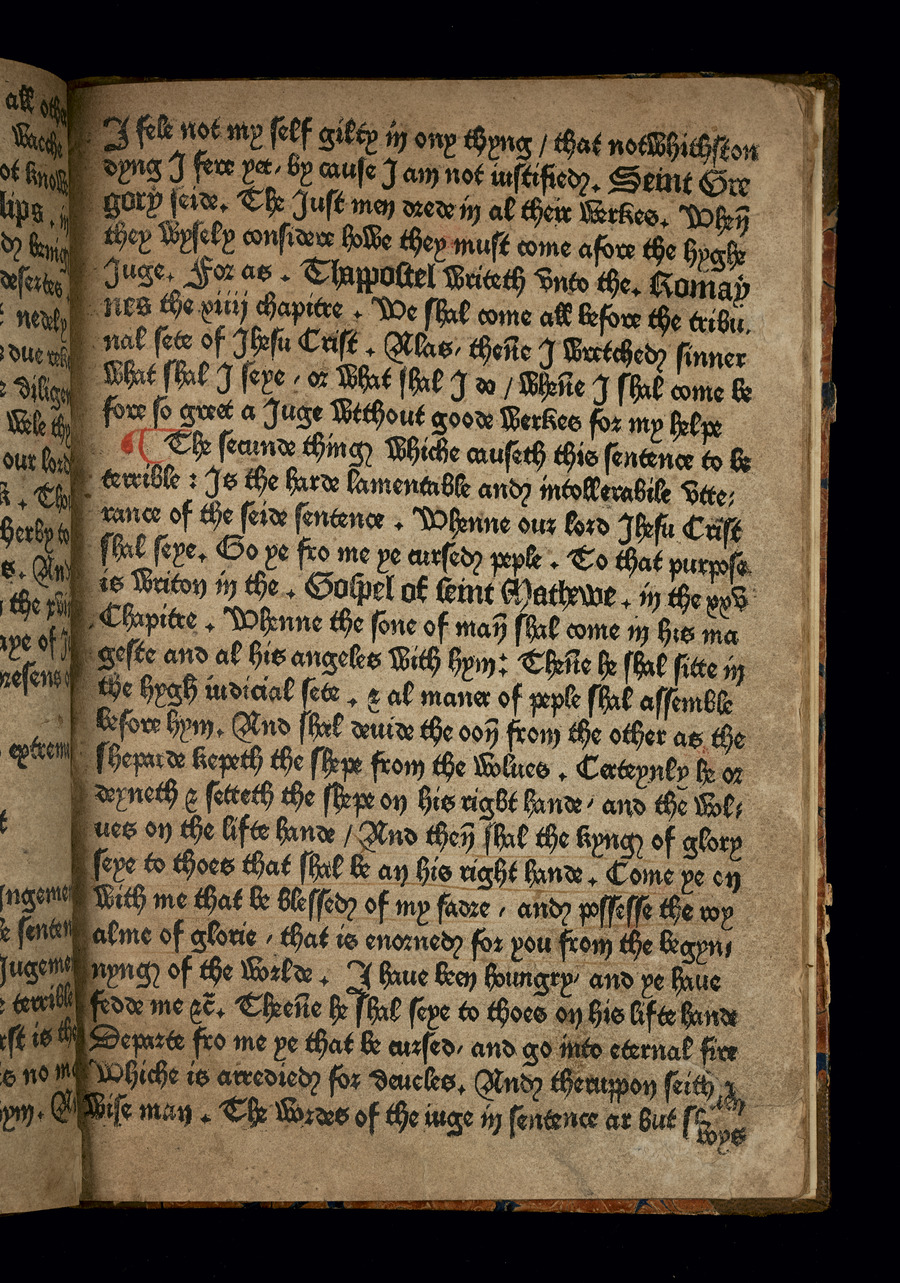 all othe
Wacche
ot know
lips . in
dꝫ bring
desertes
nedely
due reke
diligen
Wele thy
our lord
k . Tho
herby to
s. And
the xvij
aye of J
presens
extreme
t
Jngemen
senten
Jugeme
terrible
rst is the
is no m
hym. A
J fele not my self gilty in ony thyng / that notWhithston
dyng J fere yet, by cause J am not iustifiedꝫ. Seint Gre
gory seide. The Just men drede in al their Werkes. Wheñ
they Wysely considere hoWe they must come afore the hyghe
Juge. For as . Thappostel Writeth vnto the. Romay
nes the xiiij chapitre . We shal come all before the tribu,
nal sete of Jhesu Crist . Alas, theñe J Wretchedꝫ sinner
What shal J seye , or What shal J do / Wheñe J shal come be
fore so greet a Juge Wtthout goode Werkes for my helpe
The secunde thingꝫ Whiche causeth this sentence to be
terrible : Js the harde lamentable andꝫ intollerabile vtte,
rance of the seide sentence . Whenne our lord Jhesu Crist
shal seye. Go ye fro me ye cursedꝫ peple . To that purpose
is Writon in the . Gospel of seint Mathewe . in the xxv
Chapitre . Whenne the sone of mañ shal come in his ma
geste and al his angeles With hym: Theñe he shal sitte in
the hygh iudicial sete . ⁊ al maner of peple shal assemble
before hym. And shal deuide the ooñ from the other as the
sheparde kepeth the shepe from the Wolues . Certeynly he or
deyneth ⁊ setteth the shepe on his right hande, and the Wol,
ues on the lifte hande / And theñ shal the kyngꝫ of glory
seye to thoes that shal be an his right hande . Come ye on
With me that be blessedꝫ of my fadre , andꝫ possesse the roy
alme of glorie , that is enornedꝫ for you from the begyn,
nyngꝫ of the Worlde . J have been houngry, and ye have
fedde me ⁊c̃. Theeñe he shal seye to thoes on his lifte hande
Departe fro me ye that be cursed, and go into eternal fire
Whiche is arrediedꝫ for deueles. Andꝫ theruppon seith a
Wise man . The Wordes of the iuge in sentence ar but